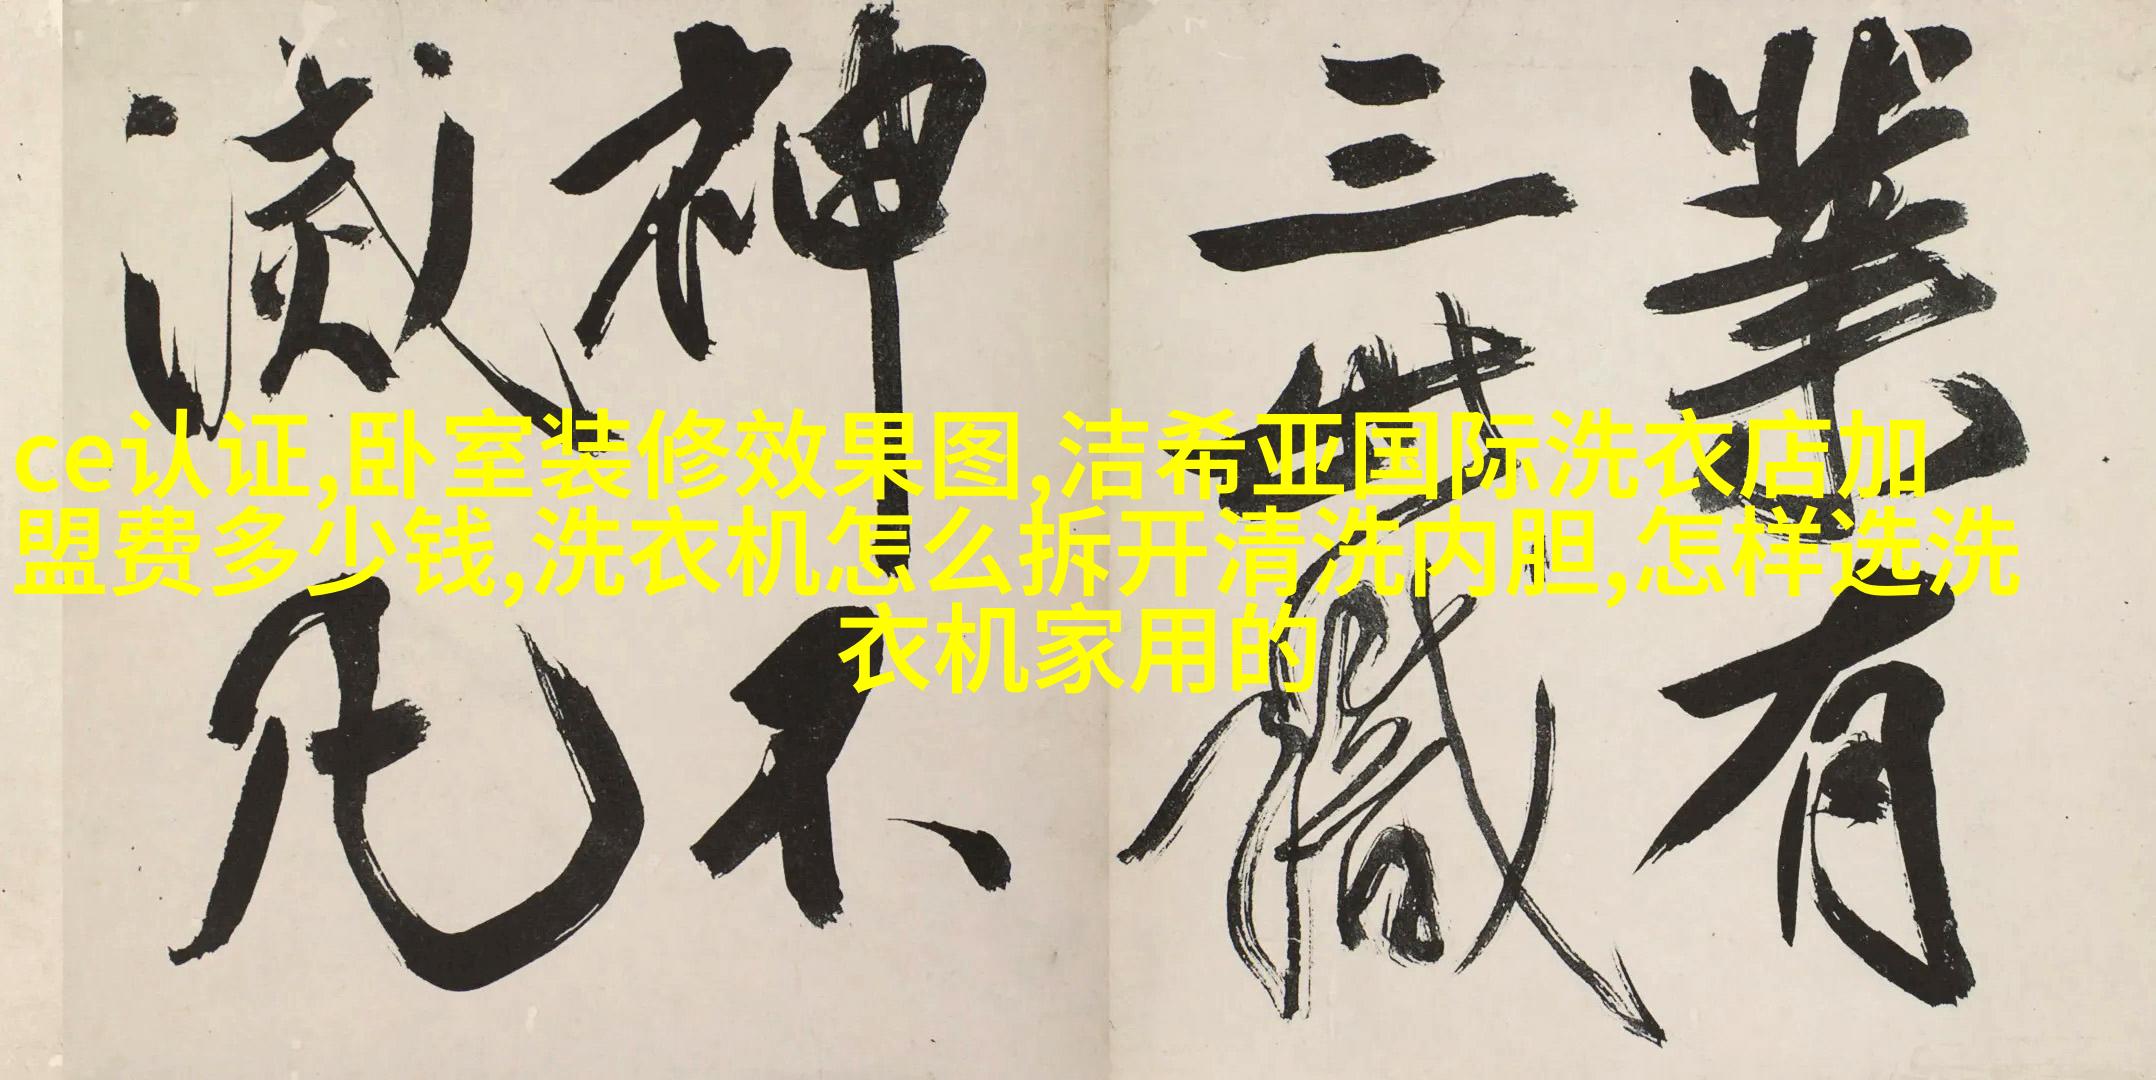 ce认证,卧室装修效果图,洁希亚国际洗衣店加
盟费多少钱,洗衣机怎么拆开清洗内胆,怎样选洗
衣机家用的
業有
三世
神不
滅凡